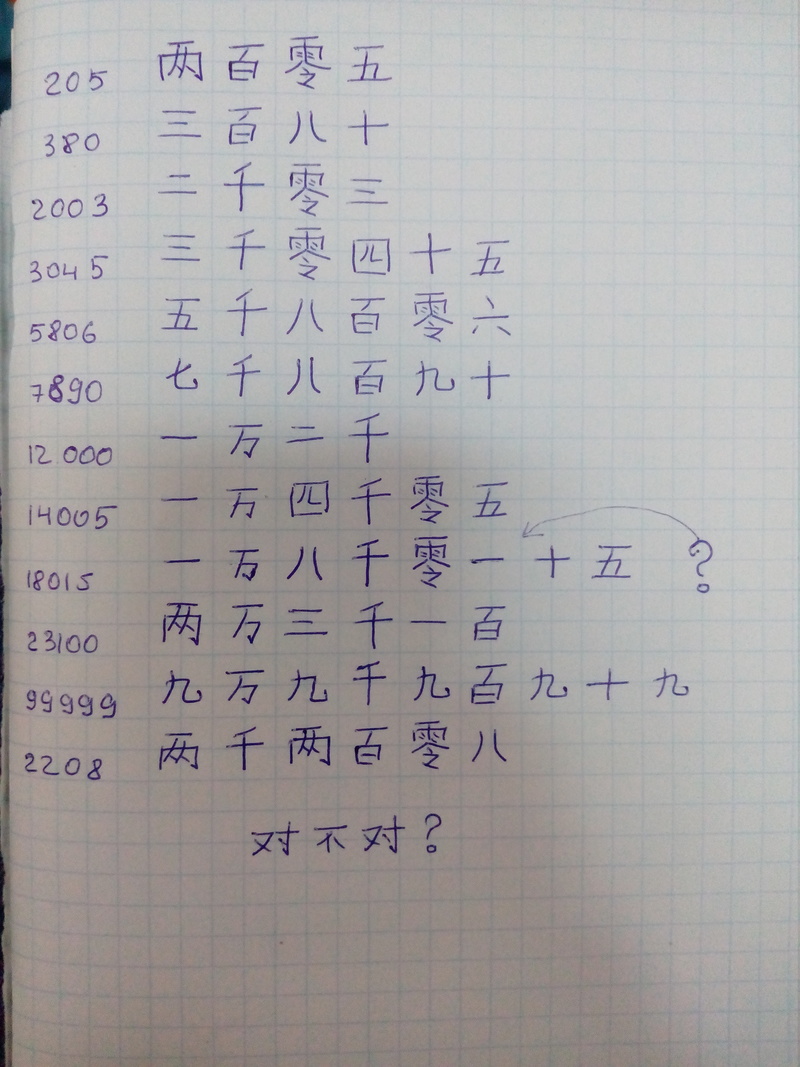 205 两百零五
380 三百八十
2003 二千零三
3045 三千零四十五
5806 五千八百零六
7890 七千八百九十
12 000 一万二千
14005 一万四千零五
18015 一万八千零一十五 ?
23100 两万三千一百
99999 九万九千九百九十九
2208 两千两百零八
对不对?